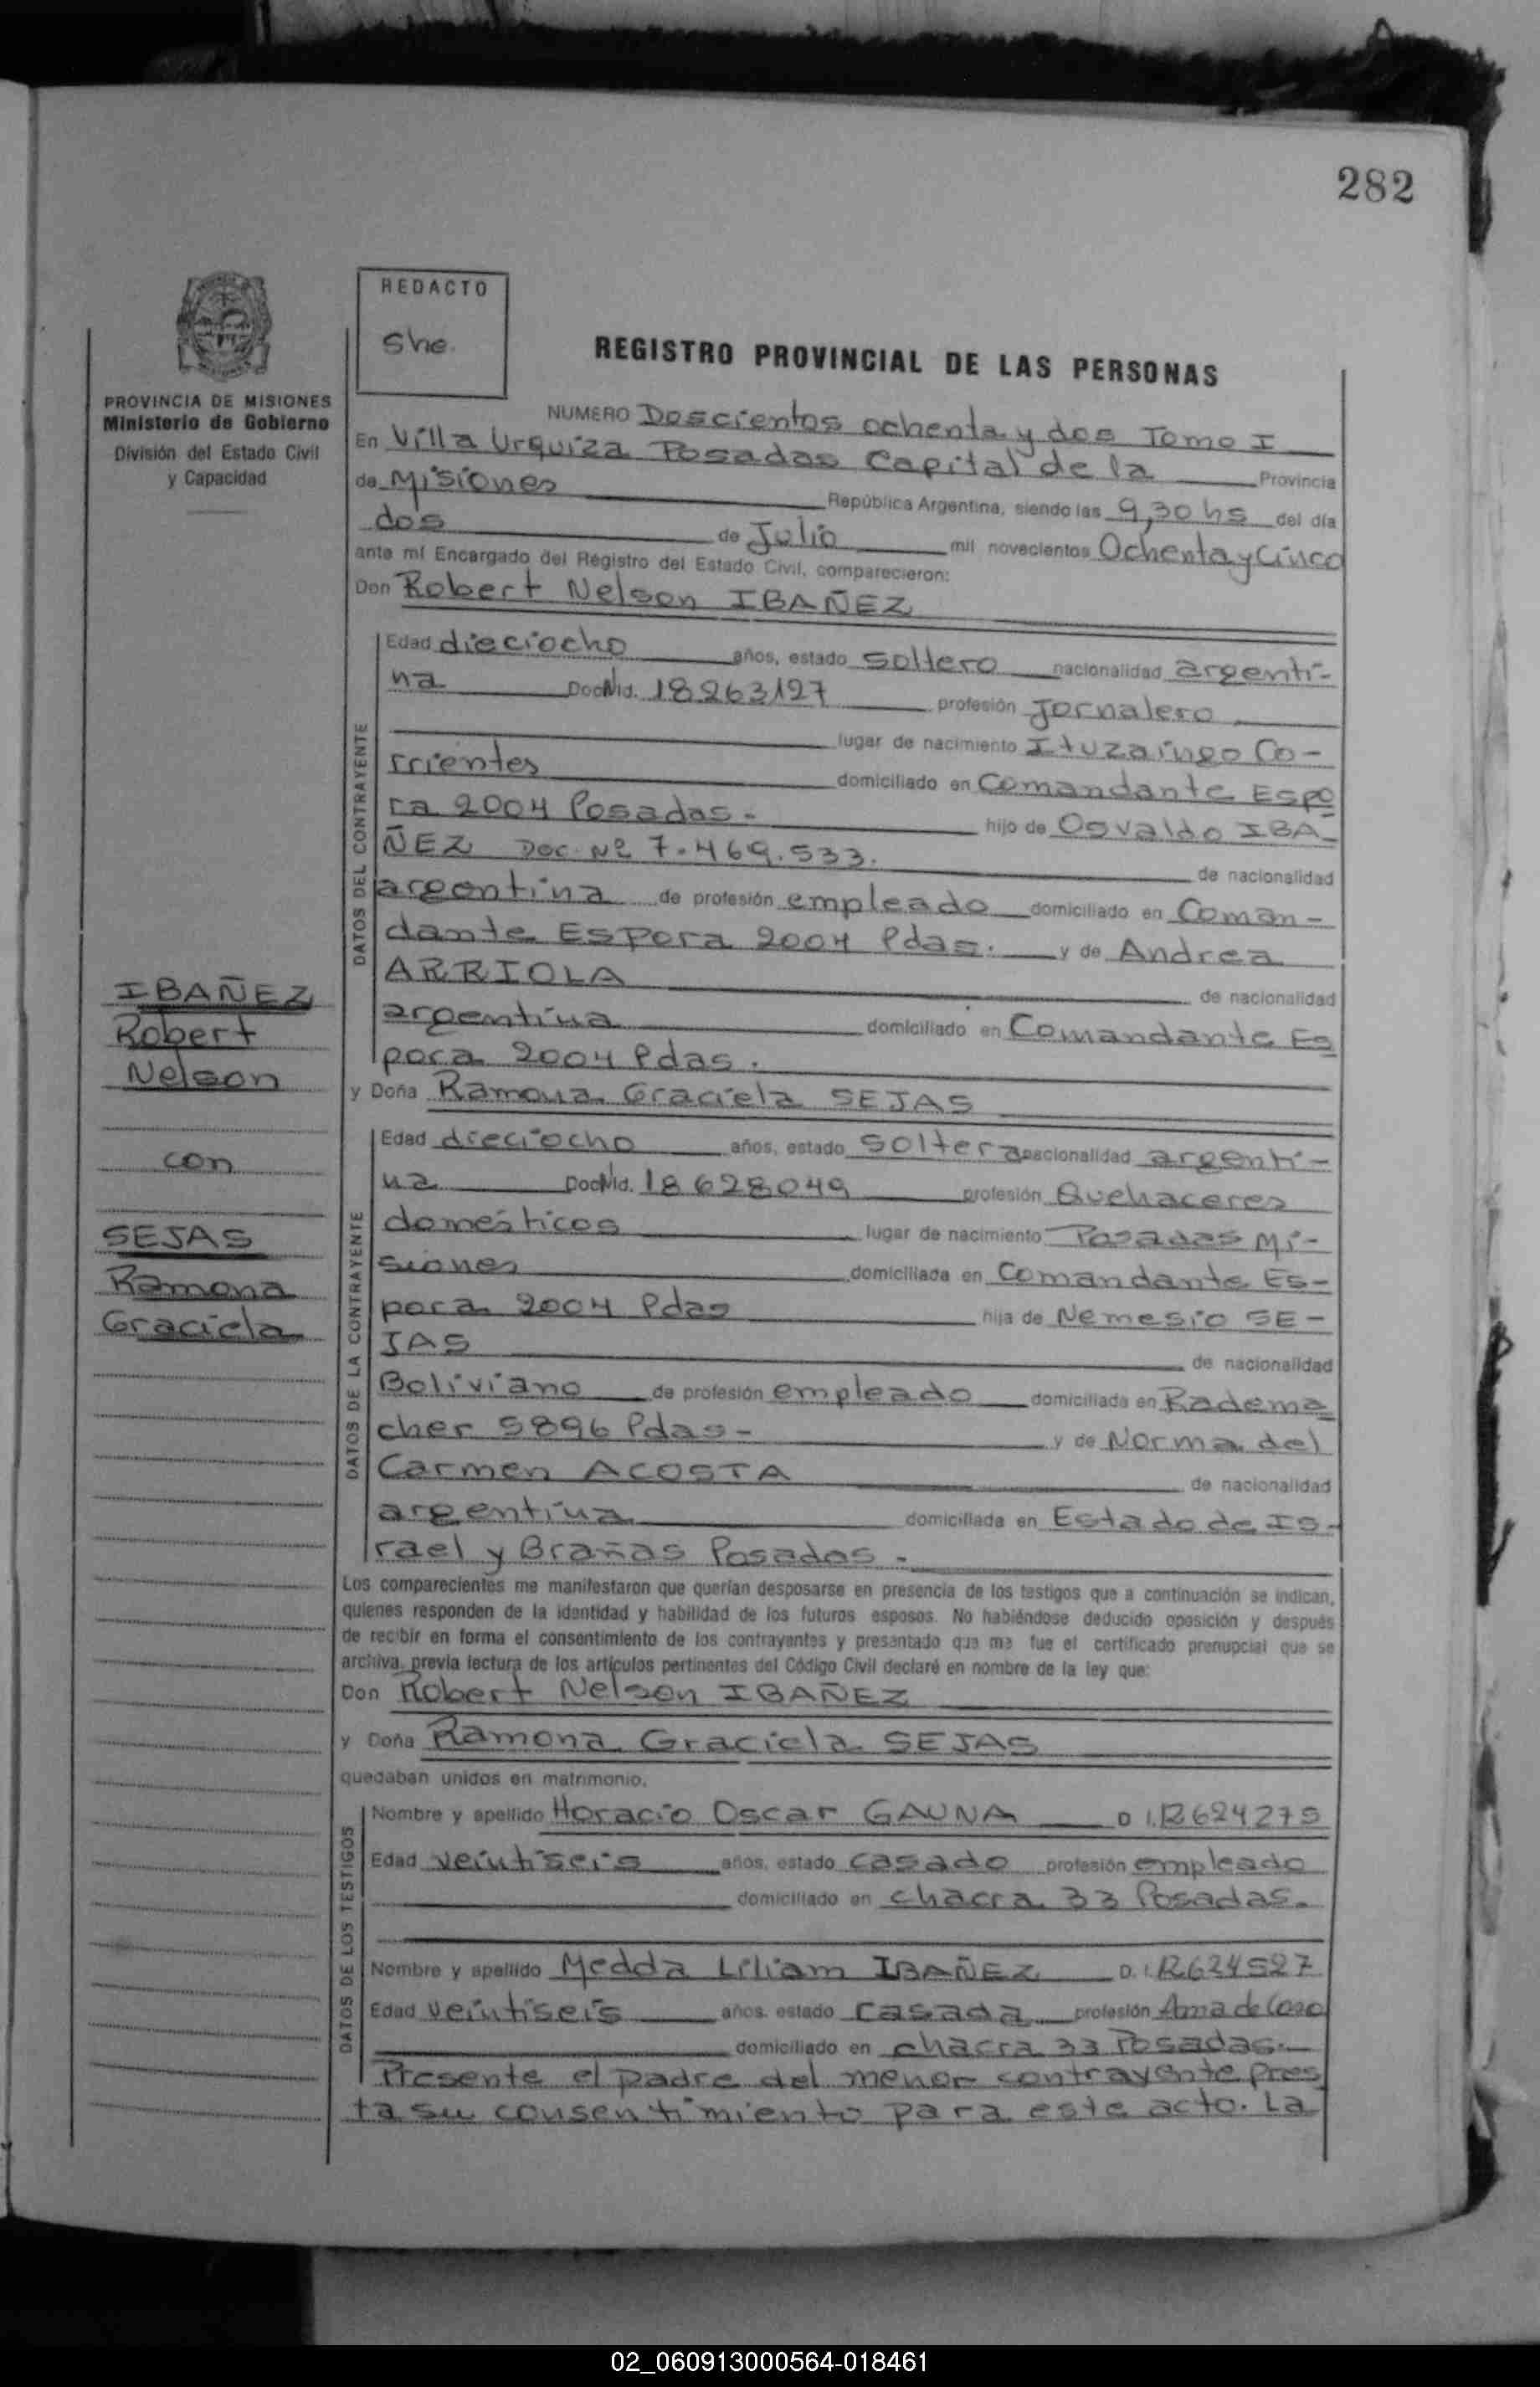 282
REDACTO
She.
PROVINCIA DE MISIONES
Ministerio de Gobierno
División del Estado Civil
y Capacidad
REGISTRO PROVINCIAL DE LAS PERSONAS
NUMERO Doscientos ochenta y dos Tomo I
En Villa Urquiza Posadas Capital de la Provincia
de Misiones República Argentina, siendo las 9,30 hs del día
dos de Julio mil novecientos Ochenta y Cinco
ante mí Encargado del Registro del Estado Civil, comparecieron:
Don Robert Nelson IBAÑEZ
DATOS DEL CONTRAYENTE
Edad dieciocho años, estado soltero nacionalidad argenti-
na Doc Nld. 18263127 profesión Jornalero
lugar de nacimiento Ituzaingo Co-
rrientes domiciliado en Comandante Espo
ra 2004 Posadas.- hijo de Osvaldo IBA-
ÑEZ Doc. Nº 7.469.533. de nacionalidad
argentina de profesión empleado domiciliado en Coman-
dante Espora 2004 Pdas. y de Andrea
ARRIOLA de nacionalidad
argentina domiciliado en Comandante Es
pora 2004 Pdas.
y Doña Ramona Graciela SEJAS
DATOS DE LA CONTRAYENTE
Edad dieciocho años, estado Soltera nacionalidad argenti-
na Doc Nld. 18628049 profesión Quehaceres
domésticos lugar de nacimiento Posadas Mi-
siones domiciliada en Comandante Es-
pora 2004 Pdas hija de Nemesio SE-
JAS de nacionalidad
Boliviano de profesión empleado domiciliada en Radema
cher 5896 Pdas- y de Norma del
Carmen ACOSTA de nacionalidad
argentina domiciliada en Estado de Is-
rael y Brañas Posadas.
IBAÑEZ
Robert
Nelson
con
SEJAS
Ramona
Graciela
Los comparecientes me manifestaron que querían desposarse en presencia de los testigos que a continuación se indican,
quienes responden de la identidad y habilidad de los futuros esposos. No habiéndose deducido oposición y después
de recibir en forma el consentimiento de los contrayentes y presentado que me fue el certificado prenupcial que se
archiva, previa lectura de los artículos pertinentes del Código Civil declaré en nombre de la ley que:
Don Robert Nelson IBAÑEZ
y Doña Ramona Graciela SEJAS
quedaban unidos en matrimonio.
DATOS DE LOS TESTIGOS
Nombre y apellido Horacio Oscar GAUNA D.I. 12624275
Edad veintiseis años, estado casado profesión empleado
domiciliado en chacra 33 Posadas.
Nombre y apellido Medda Liliam IBAÑEZ D.I. 12624527
Edad veintiseis años, estado casada profesión Ama de Casa
domiciliado en chacra 33 Posadas.
Presente el padre del menor contrayente pres
ta su consentimiento para este acto. La
02_060913000564-018461